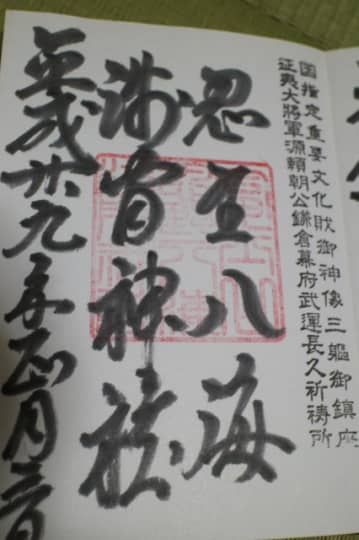 国指定重要文化財御神像三軀御鎮座
征夷大將軍源頼朝公鎌倉幕府武運長久祈祷所
八海
神社
平成廿九年正月